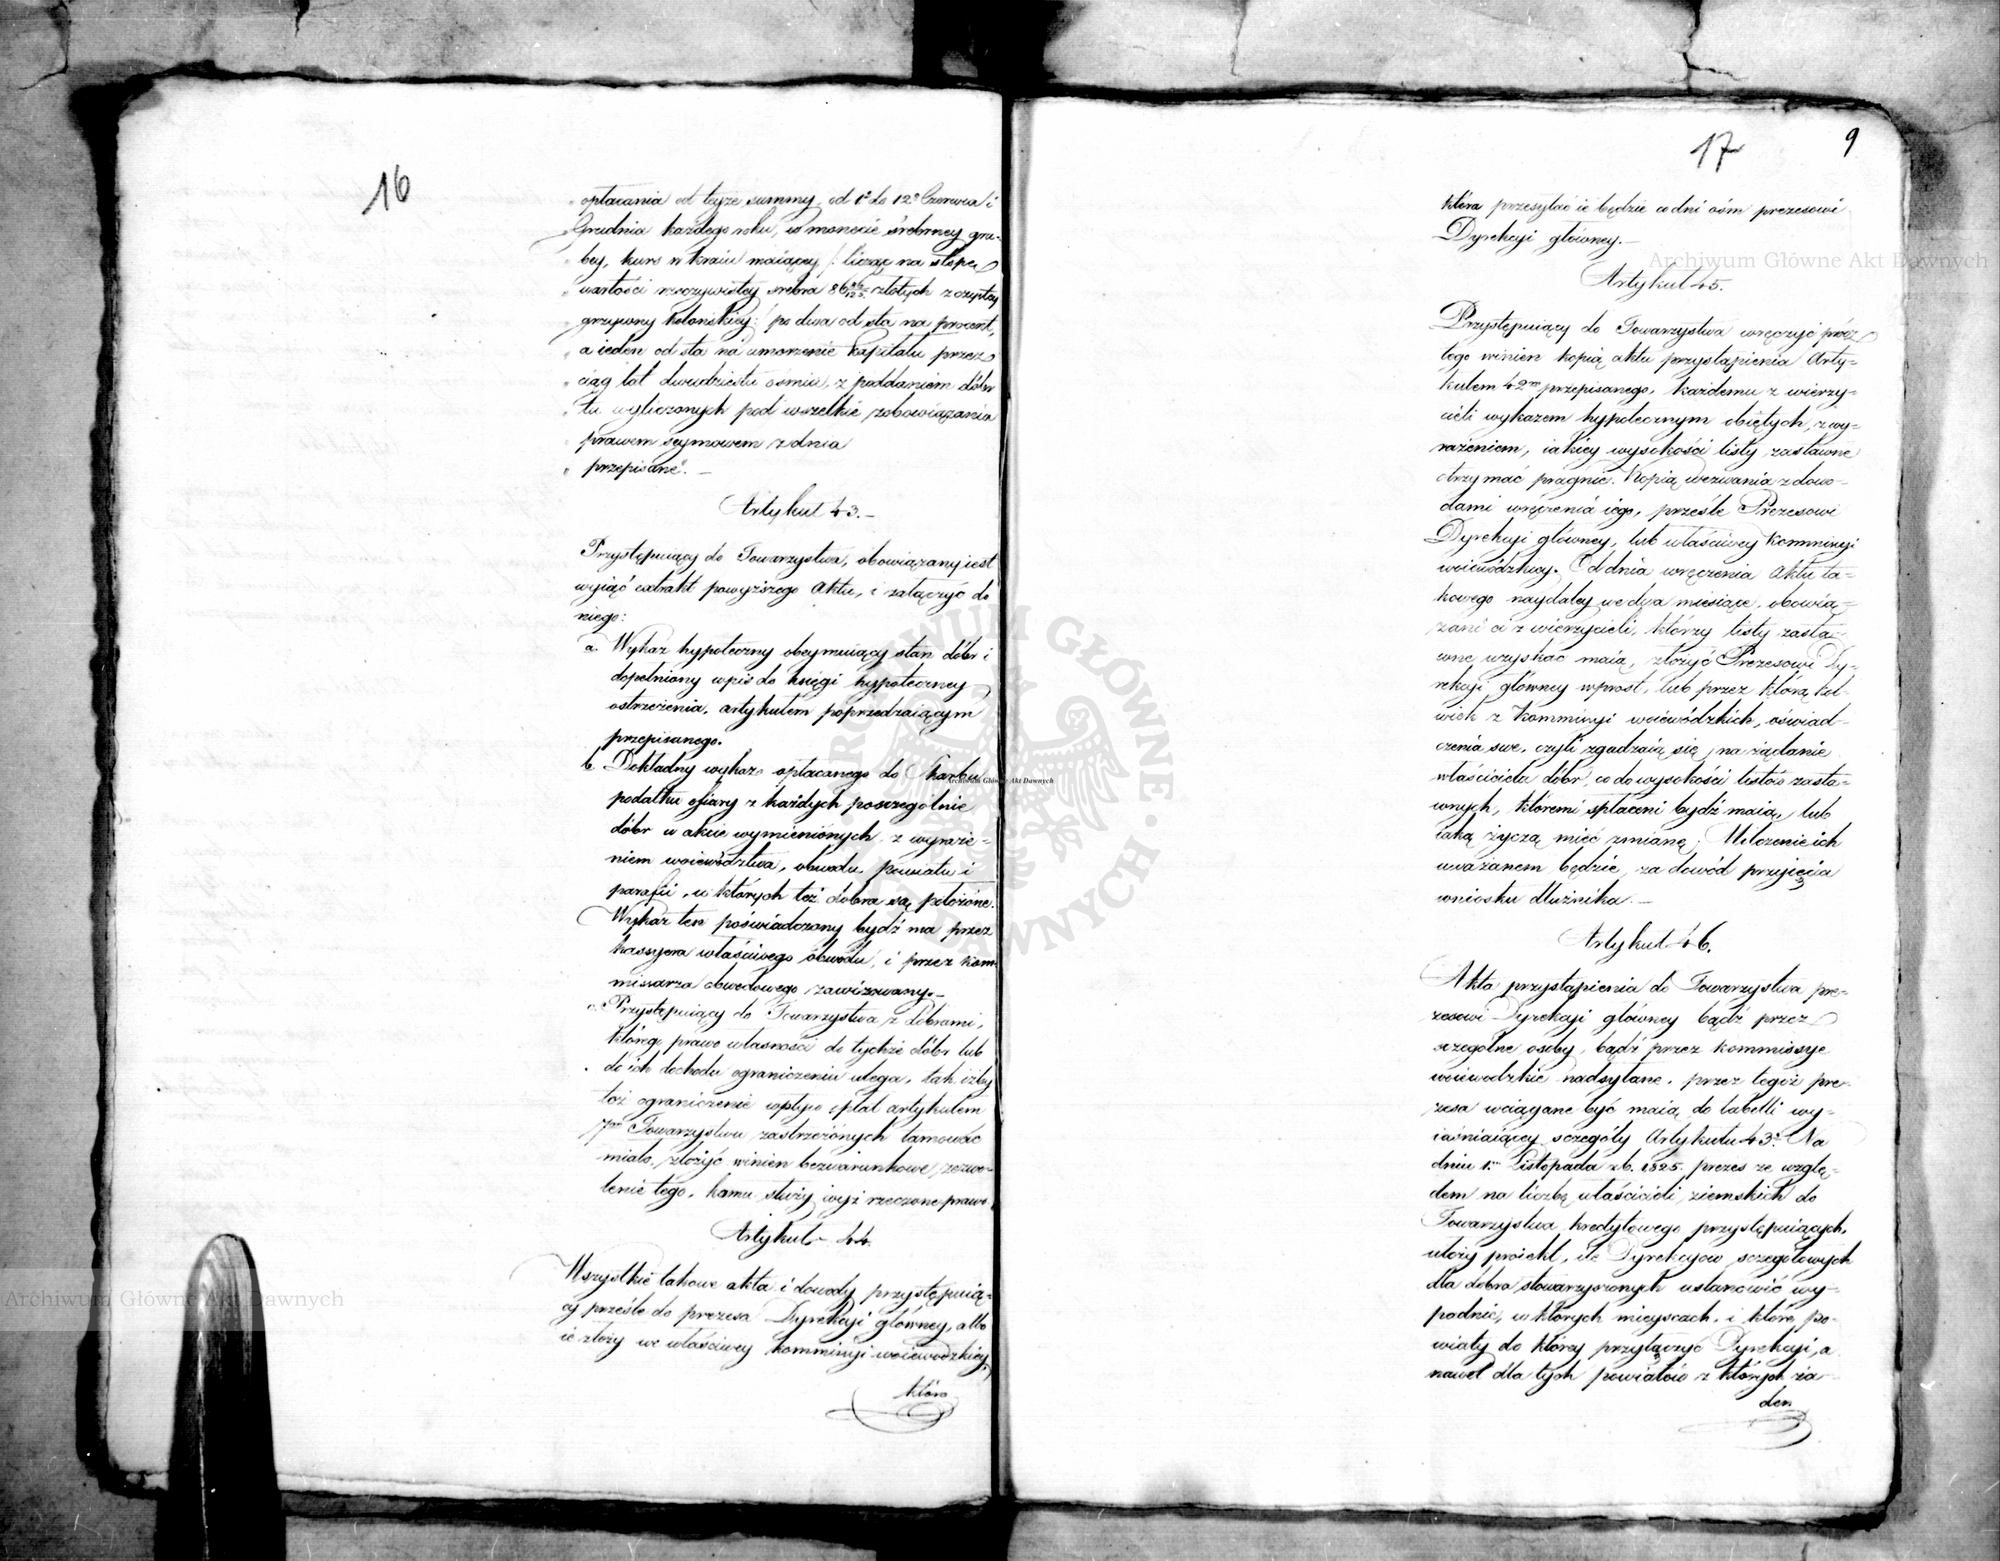 16
„ opłacania od teyże summy, od 1º do 12º Czerwca i
„ Grudnia każdego roku, w monecie srebrney gru-
„ bey, kurs w kraiu maiącey /: licząc na stopę
„ wartości rzeczywistey srebra 86 86/125 złotych z czystey
grzywny kolońskiey :/ po dwa od sta na procent,
„ a ieden od sta na umorzenie kapitału przez
„ ciąg lat dwudziestu ośmiu, z poddaniem dóbr
„ tu wyliczonych pod wszelkie zobowiązania
„ prawem seymowem z dnia
„ przepisane". —
Artykuł 43. —
Przystępuiący do Towarzystwa, obowiązany iest
wyiąć extrakt powyższego Aktu, i załączyć do
niego:
a. Wykaz hypoteczny obeymuiący stan dóbr i
dopełniony wpis do księgi hypoteczney
ostrzeżenia, artykułem poprzedzaiącym
przepisanego.
b. Dokładny wykaz opłacanego do Skarbu
podatku ofiary z każdych poszczególnie
dóbr w akcie wymienionych, z wyraże-
niem woiewództwa, obwodu, powiatu i
parafii, w których też dobra są położone.
Wykaz ten poświadczony bydź ma przez
kassyera właściwego obwodu, i przez kom-
missarza obwodowego zawizowany. —
c. Przystępuiący do Towarzystwa z dobrami,
którego prawo własności do tychże dóbr lub
do ich dochodu ograniczeniu ulega, tak iżby
toż ograniczenie wpływ opłat artykułem
7m Towarzystwu zastrzeżonych tamować
miało, złożyć winien bezwarunkowe zezwo-
lenie tego, komu służy wyż rzeczone prawo.
Artykuł 44.
Wszystkie takowe akta i dowody przystępuią-
cy prześle do prezesa Dyrekcyi główney, albo
ie złoży we właściwey kommissyi woiewódzkiey,
która
17
9
która przesyłać ie będzie co dni ośm prezesowi
Dyrekcyi główney. —
Artykuł 45.
Przystępuiący do Towarzystwa wręczyć prócz
tego winien kopią aktu przystąpienia Arty-
kułem 42m przepisanego, każdemu z wierzy-
cieli wykazem hypotecznym obiętych, z wy-
rażeniem, iakiey wysokości listy zastawne
otrzymać pragnie. Kopią wezwania z dowo-
dami wręczenia iego, prześle Prezesowi
Dyrekcyi główney, lub właściwey Kommissyi
woiewódzkiey. Od dnia wręczenia Aktu ta-
kowego naydaley we dwa miesiące, obowią-
zani ci z wierzycieli, którzy listy zasta-
wne uzyskać maią, złożyć Prezesowi Dy-
rekcyi główney wprost, lub przez którą kol-
wiek z Kommissyi woiewódzkich, oświad-
czenia swe, czyli zgadzaią się na żądanie
właściciela dóbr, co do wysokości listów zasta-
wnych, któremi spłaceni bydź maią, lub
iaką życzą mieć zmianę; Milczenie ich
uważanem będzie, za dowód przyięcia
wniosku dłużnika. —
Artykuł 46.
Akta przystąpienia do Towarzystwa pre-
zesowi Dyrekcyi główney bądź przez
szczególne osoby, bądź przez kommissye
woiewódzkie nadsyłane, przez tegoż pre-
zesa wciągane być maią do tabelli wy-
iaśniaiącey szczegóły Artykułu 43º. Na
dniu 1m Listopada r.b. 1825. prezes ze wzglę-
dem na liczbę właścicieli ziemskich do
Towarzystwa kredytowego przystępuiących,
ułoży proiekt, ile Dyrekcyów szczegółowych
dla dobra stowarzyszonych ustanowić wy-
padnie, w których mieyscach, i które po-
wiaty do którey przyłączyć Dyrekcyi, a
nawet dla tych powiatów z których ża-
den
Archiwum Główne Akt Dawnych
Archiwum Główne Akt Dawnych
Archiwum Główne Akt Dawnych
ARCHIWUM GŁÓWNE AKT DAWNYCH